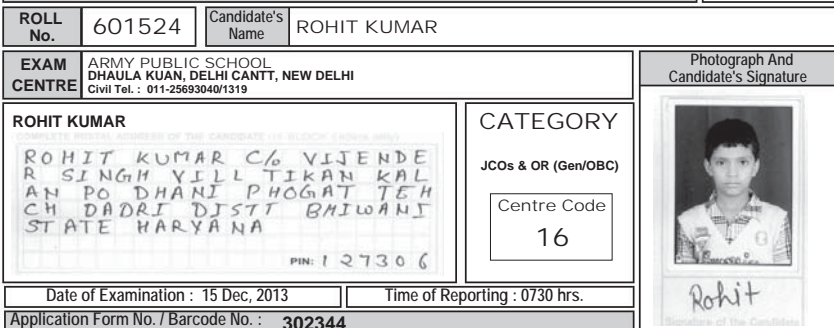 ROLL No.
601524
Candidate's Name
ROHIT KUMAR
EXAM CENTRE
ARMY PUBLIC SCHOOL
DHAULA KUAN, DELHI CANTT, NEW DELHI
Civil Tel. : 011-25693040/1319
Photograph And
Candidate's Signature
ROHIT KUMAR
COMPLETE POSTAL ADDRESS OF THE CANDIDATE (in BLOCK letters only)
ROHIT KUMAR C/o VIJENDE
R SINGH VILL TIKAN KAL
AN PO DHANI PHOGAT TEH
CH DADRI DISTT BHIWANI
STATE HARYANA
PIN: 127306
CATEGORY
JCOs & OR (Gen/OBC)
Centre Code
16
Rohit
Signature of the Candidate
Date of Examination : 15 Dec, 2013
Time of Reporting : 0730 hrs.
Application Form No. / Barcode No. : 302344